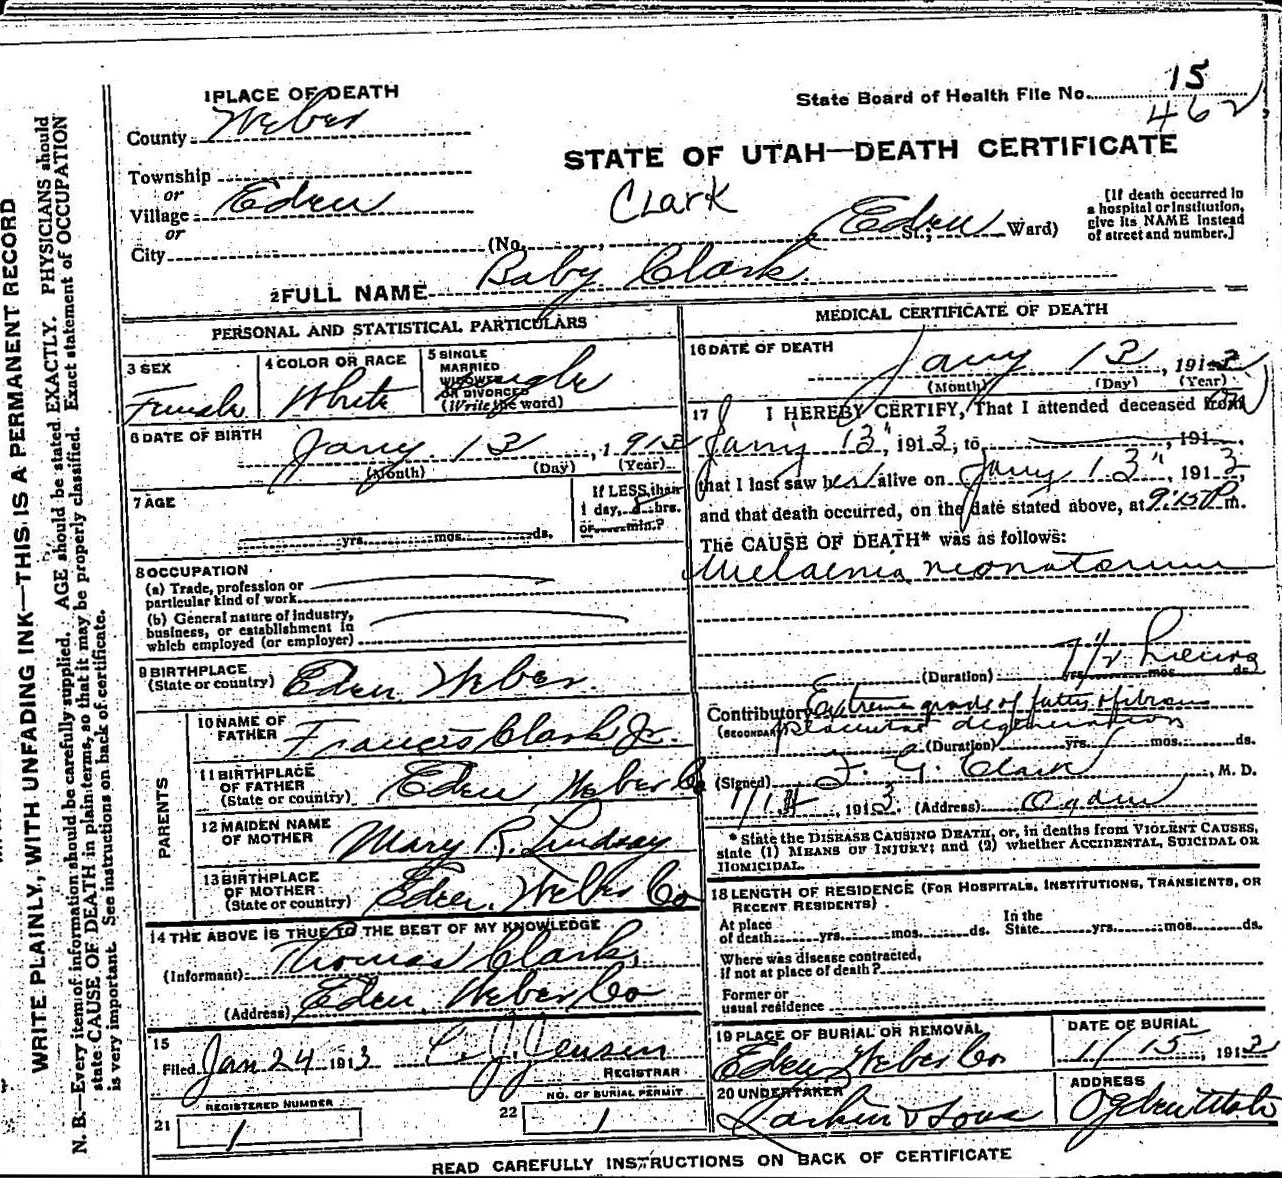 15
State Board of Health File No.
462
1 PLACE OF DEATH
County Weber
STATE OF UTAH—DEATH CERTIFICATE
Township
or
Village Eden
or
City
Clark
(No. , Eden St.; Ward)
[If death occurred in
a hospital or institution,
give its NAME instead
of street and number.]
2 FULL NAME Baby Clark
PERSONAL AND STATISTICAL PARTICULARS
3 SEX
Female
4 COLOR OR RACE
White
5 SINGLE
MARRIED
WIDOWED
OR DIVORCED
(Write the word)
Single
6 DATE OF BIRTH
Jany. 13, 1913
(Month) (Day) (Year)
7 AGE
yrs. mos. ds.
If LESS than
1 day, hrs.
or min.?
8 OCCUPATION
(a) Trade, profession or
particular kind of work
(b) General nature of industry,
business, or establishment in
which employed (or employer)
9 BIRTHPLACE
(State or country) Eden Weber
PARENTS
10 NAME OF
FATHER Francis Clark Jr.
11 BIRTHPLACE
OF FATHER
(State or country) Eden Weber Co
12 MAIDEN NAME
OF MOTHER Mary R. Lindsay
13 BIRTHPLACE
OF MOTHER
(State or country) Eden. Weber Co
14 THE ABOVE IS TRUE TO THE BEST OF MY KNOWLEDGE
(Informant) Thomas Clark,
(Address) Eden Weber Co
15
Filed Jan 24 1913 C. J. Jensen
REGISTRAR
REGISTERED NUMBER
21 1
NO. OF BURIAL PERMIT
22 1
MEDICAL CERTIFICATE OF DEATH
16 DATE OF DEATH
Jany 13, 1913
(Month) (Day) (Year)
17 I HEREBY CERTIFY, That I attended deceased from
Jany 13", 1913, to , 191 .
that I last saw her alive on Jany 13", 1913,
and that death occurred, on the date stated above, at 9:15 P m.
The CAUSE OF DEATH* was as follows:
Melaenia neonatorum
(Duration) yrs. mos. ds.
Contributory Extreme grade of fatty & fibrous
(SECONDARY) placental degeneration
(Duration) yrs. mos. ds.
(Signed) F. G. Clark, M. D.
1/14, 1913. (Address) Ogden
* State the DISEASE CAUSING DEATH, or, in deaths from VIOLENT CAUSES,
state (1) MEANS OF INJURY; and (2) whether ACCIDENTAL, SUICIDAL OR
HOMICIDAL.
18 LENGTH OF RESIDENCE (FOR HOSPITALS, INSTITUTIONS, TRANSIENTS, OR
RECENT RESIDENTS)
At place
of death yrs. mos. ds.
In the
State yrs. mos. ds.
Where was disease contracted,
if not at place of death?
Former or
usual residence
19 PLACE OF BURIAL OR REMOVAL
Eden Weber Co
DATE OF BURIAL
1/15, 1913
20 UNDERTAKER
Larkin & Sons
ADDRESS
Ogden Utah
READ CAREFULLY INSTRUCTIONS ON BACK OF CERTIFICATE
WRITE PLAINLY, WITH UNFADING INK—THIS IS A PERMANENT RECORD
N. B.—Every item of information should be carefully supplied. AGE should be stated EXACTLY. PHYSICIANS should
state CAUSE OF DEATH in plain terms, so that it may be properly classified. Exact statement of OCCUPATION
is very important. See instructions on back of certificate.